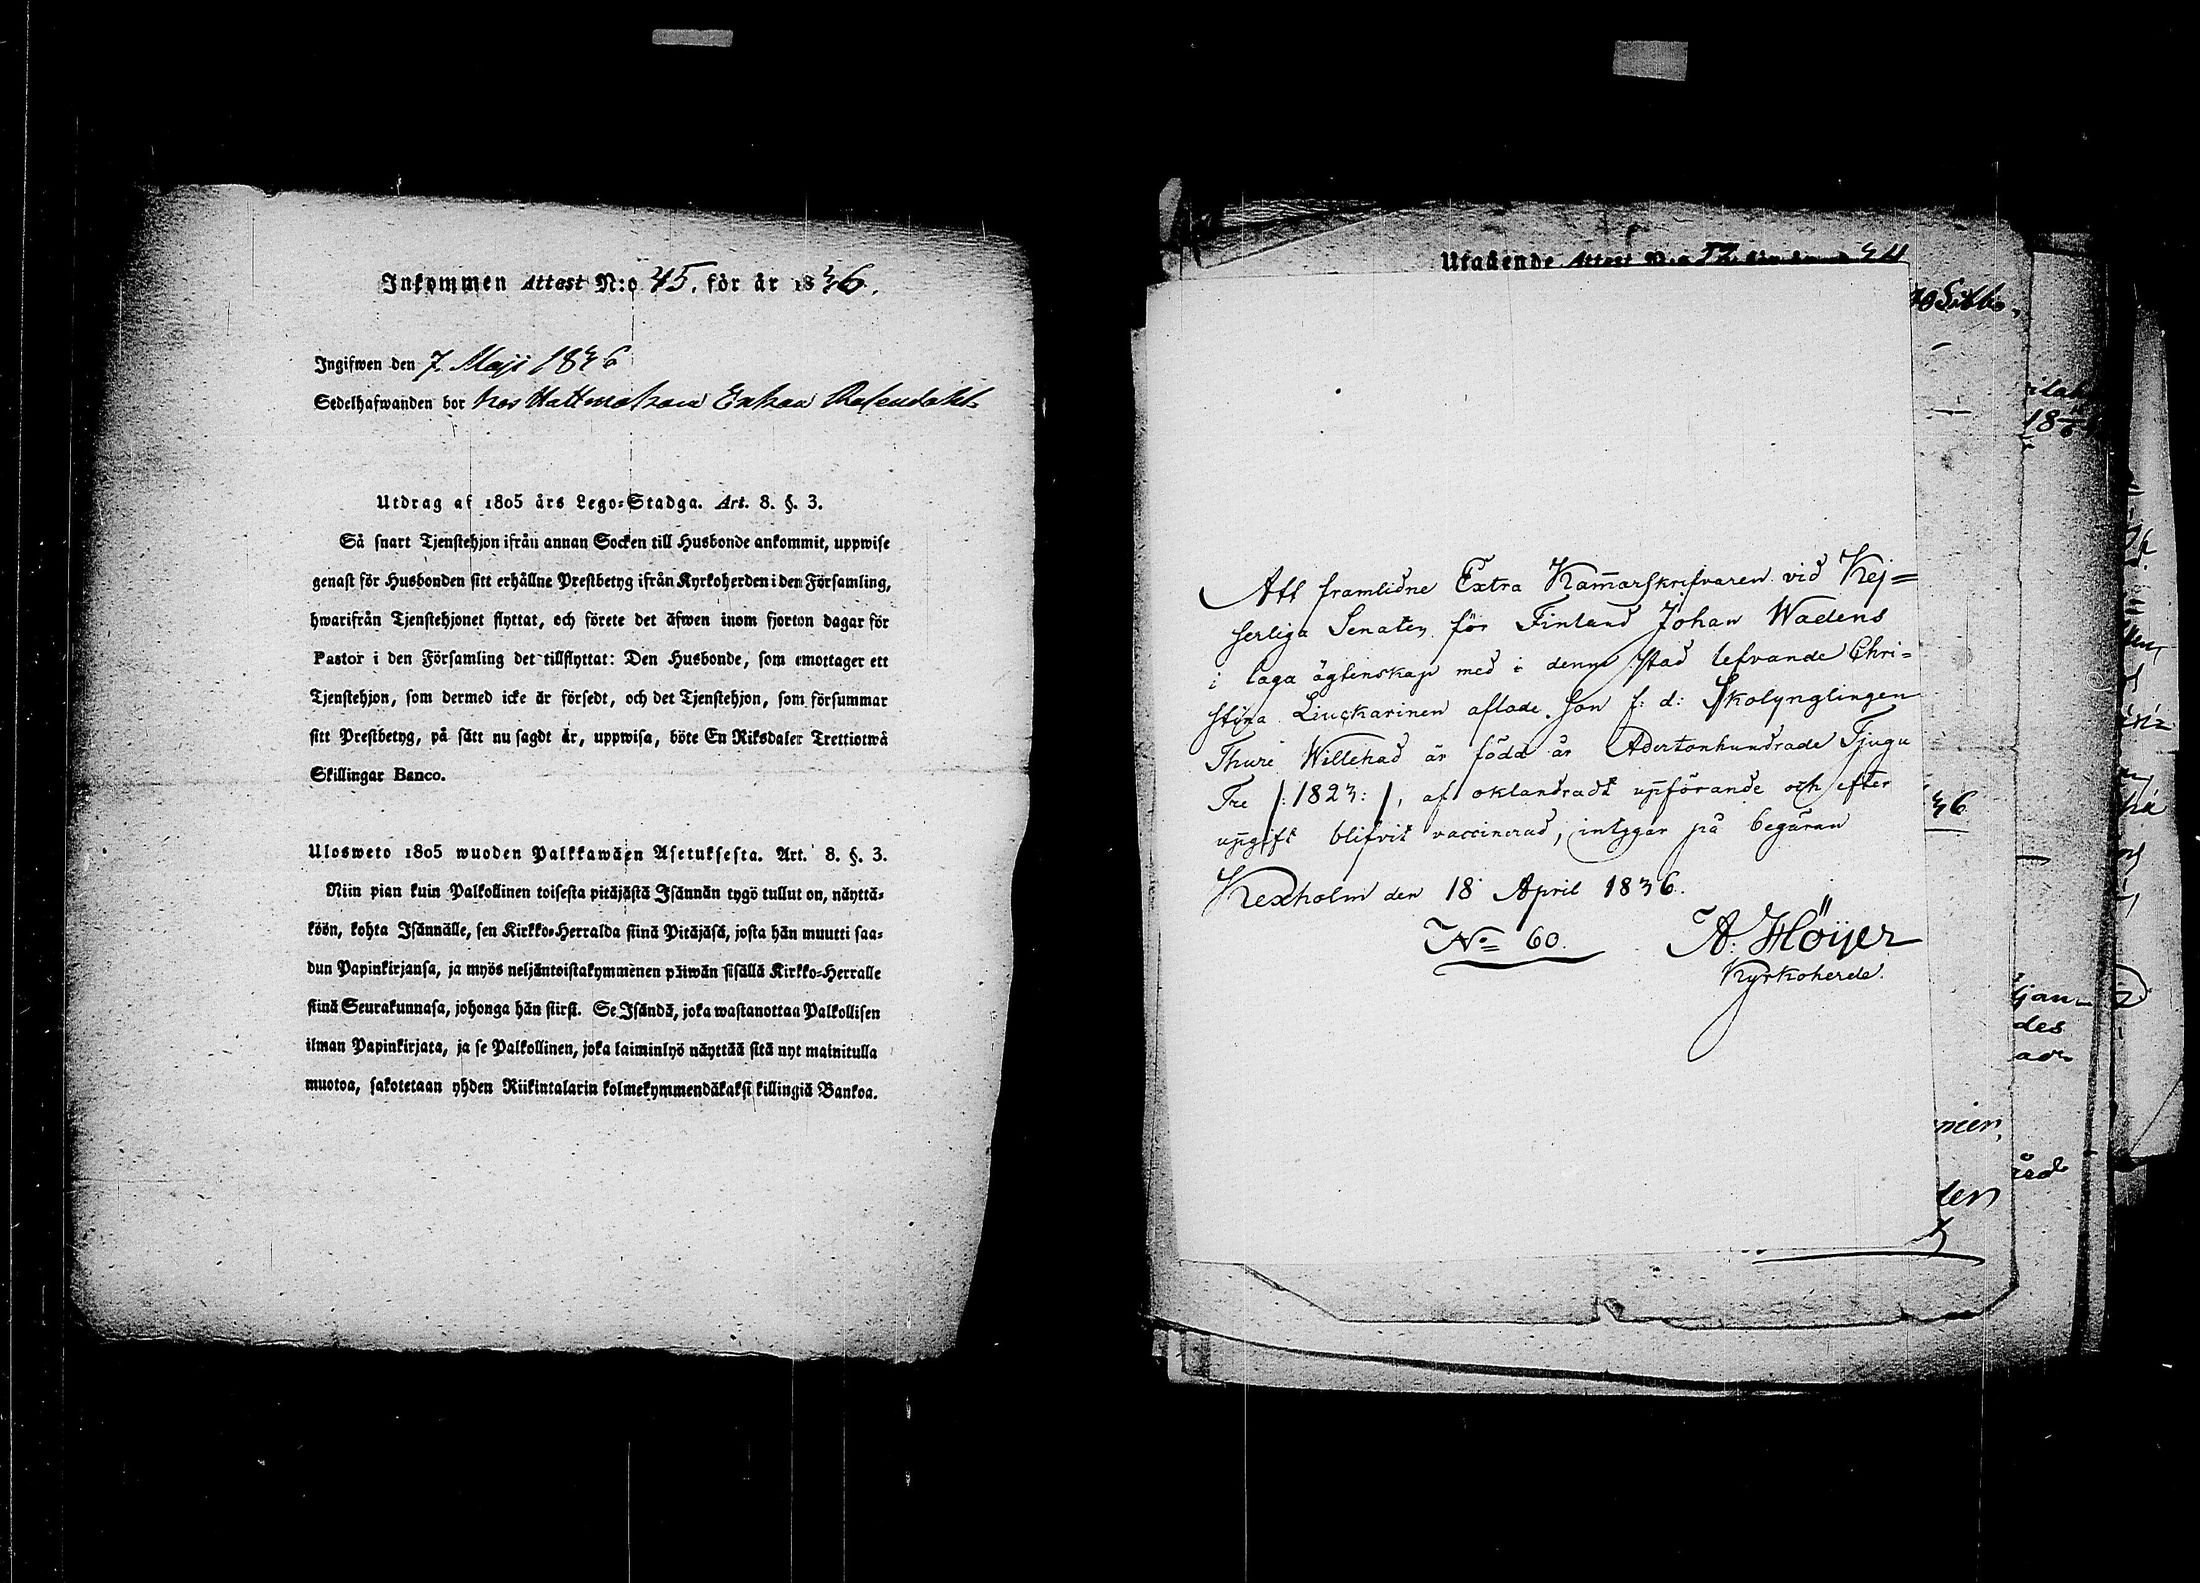 Inkommen Attest N:o 45. för år 1836.
Ingifwen den 7. Maji 1836
Sedelhafwanden bor hos Hattmakare Enkan
Utdrag af 1805 års Lego-Stadga. Art. 8. §. 3.
Så snart Tjenstehjon ifrån annan Socken till Husbonde ankommit, uppwise
genast för Husbonden sitt erhållne Prestbetyg ifrån Kyrkoherden i den Församling,
hwarifrån Tjenstehjonet flyttat, och förete det äfwen inom fjorton dagar för
Pastor i den Församling det tillflyttat: Den Husbonde, som emottager ett
Tjenstehjon, som dermed icke är försedt, och det Tjenstehjon, som försummar
sitt Prestbetyg, på sätt nu sagdt är, uppwisa, böte En Riksdaler Trettiotwå
Skillingar Banco.
Ulosweto 1805 wuoden Palkkawäen Asetuksesta. Art. 8. §. 3.
Niin pian kuin Palkollinen toisesta pitäjästä Isännän tygö tullut on, näyttä-
köön, kohta Isännälle, sen Kirkko-Herralda siinä Pitäjäsä, josta hän muutti saa-
dun Papinkirjansa, ja myös neljäntoistakymmenen päiwän sisällä Kirkko-Herralle
siinä Seurakunnasa, johonga hän siirsi. Se Isändä, joka wastanottaa Palkollisen
ilman Papinkirjata, ja se Palkollinen, joka laiminlyö näyttää sitä nyt mainitulla
muotoa, sakotetaan yhden Riikintalarin kolmekymmendäkaksi killingiä Bankoa.
Utgående Attest N:o
Att framlidne Extra Kammarskrifvaren vid Kej=
serliga Senaten för Finland Johan Wadens
i laga ägtenskap med i denne Stad lefvande Chri=
stina Liuckarinen aflade Son f: d: Skolynglingen
Thure Willehad är född år Adertonhundrade Tjugu
Tre /: 1823: /, af oklandradt upförande och efter
upgift blifvit vaccinerad, intygar på begäran
Kexholm den 18 April 1836.
No 60. A: Höijer
Kyrkoherde.